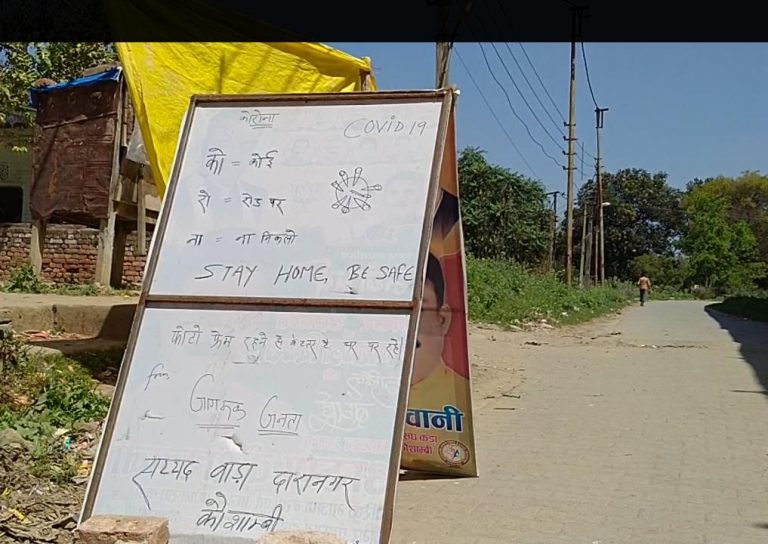 कोरोना
COVID 19
को = कोई
रो = रोड पर
ना = ना निकलो
STAY HOME, BE SAFE
फोटो फ्रेम रहने से बेहतर है घर पर रहें
from
जागरूक जनता
सय्यद वाड़ा दारानगर
कौशाम्बी
वानी
कड़ा
शाम्बी